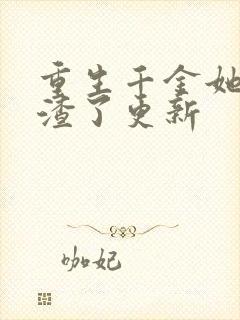 重生千金她
渣了更新
咖妃